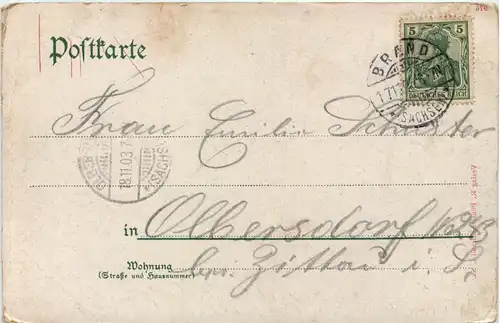 Postkarte
5 5
BRAND
(SACHSEN)
Frau Emilie Schuster
18.11.03.7
(SACHS
in Olbersdorf
Wohnung
(Straße und Hausnummer)
bei Zittau i. S.